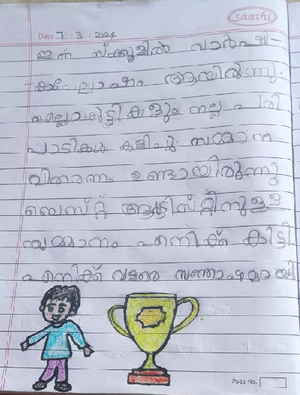 saashi
Date 7/3/2024
ഇന്ന് സ്ക്കൂളിൽ വാർഷി-
കാഘോഷം ആയിരുന്നു.
എല്ലാകുട്ടികളും നല്ല പരി
പാടികൾ കളിച്ചു സമ്മാന
വിതരണം ഉണ്ടായിരുന്നു
ബെസ്റ്റ് ആർട്ടിസ്റ്റിനുള്ള
സമ്മാനം എനിക്ക് കിട്ടി
എനിക്ക് വളരെ സന്തോഷമായി
Page No.